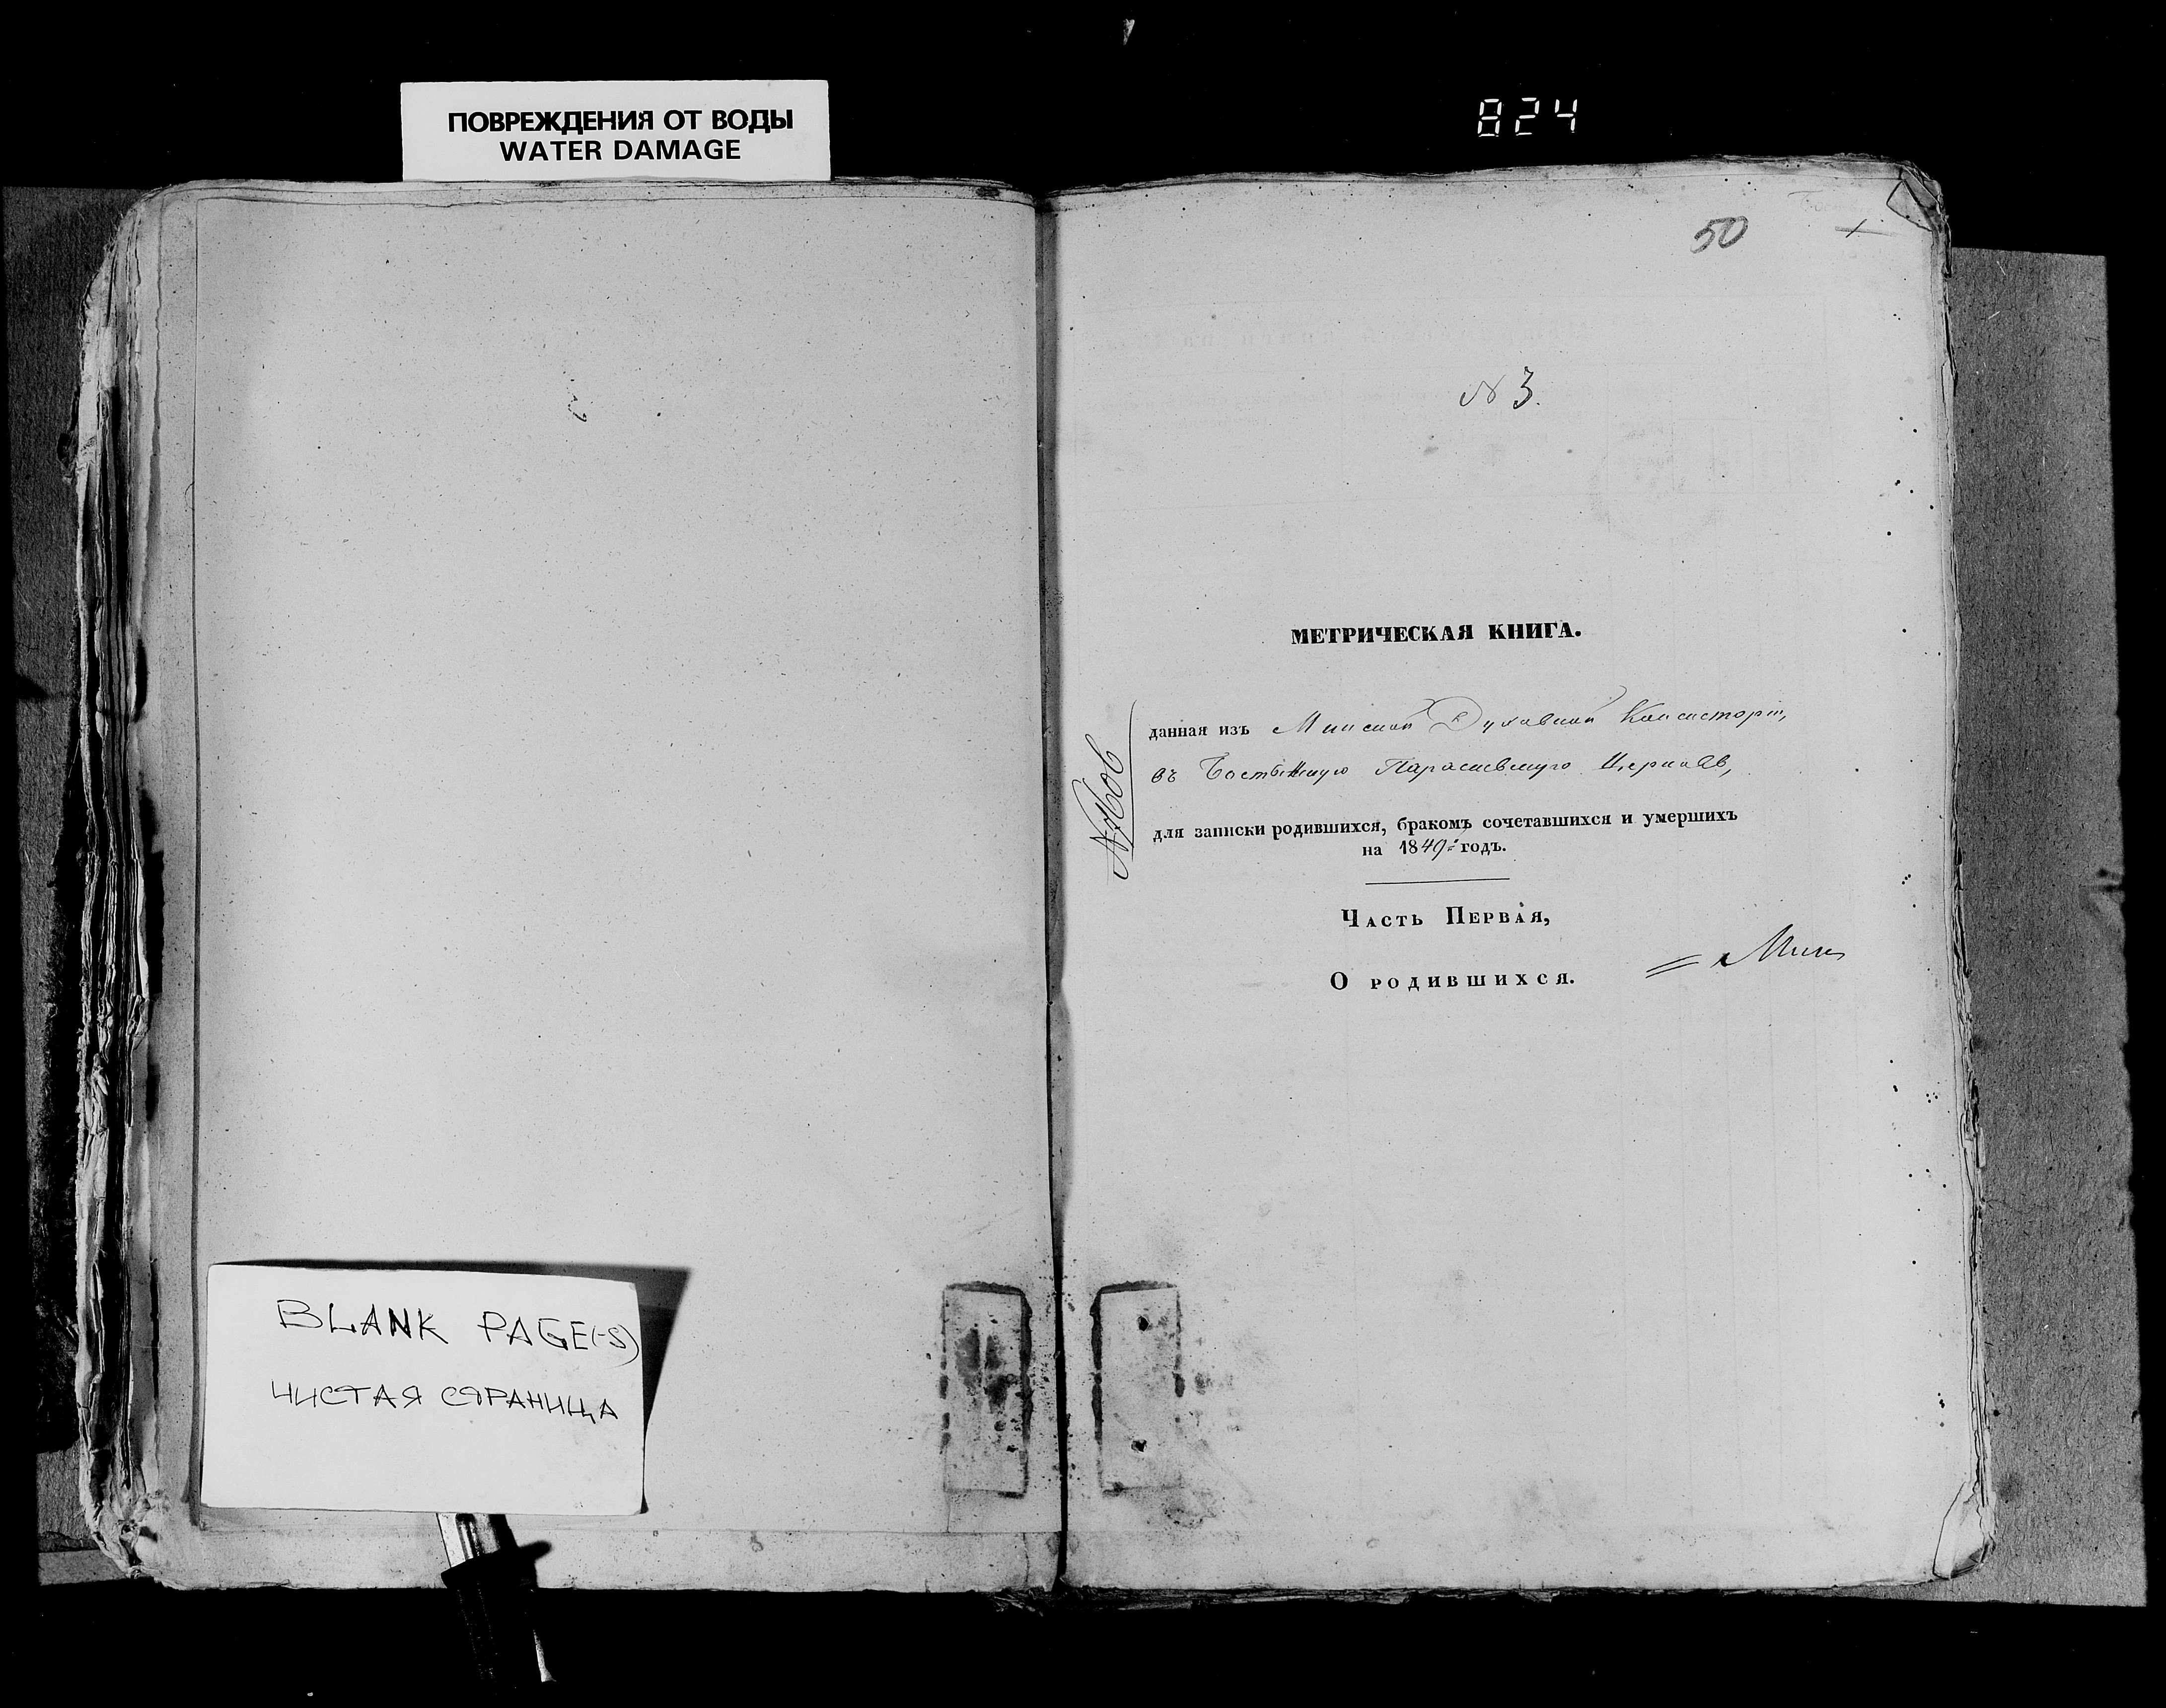 ПОВРЕЖДЕНИЯ ОТ ВОДЫ
WATER DAMAGE
824
50
N 3.
МЕТРИЧЕСКАЯ КНИГА.
данная изъ Минской Духовной Консисторіи,
въ Парасіевскую Церковь,
для записки родившихся, бракомъ сочетавшихся и умершихъ
на 1849 годъ.
Часть Первая,
О родившихся.
BLANK PAGE(-S)
ЧИСТАЯ СТРАНИЦА